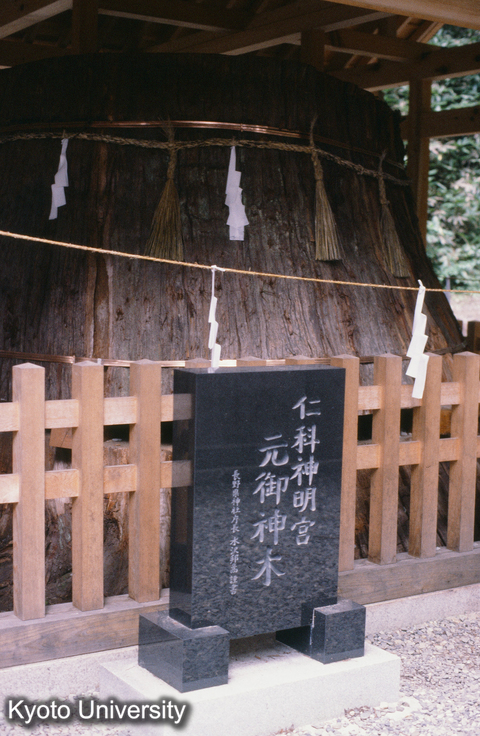 仁科神明宮
元御神木
長野県神社庁長 水沢邦
書
Kyoto University